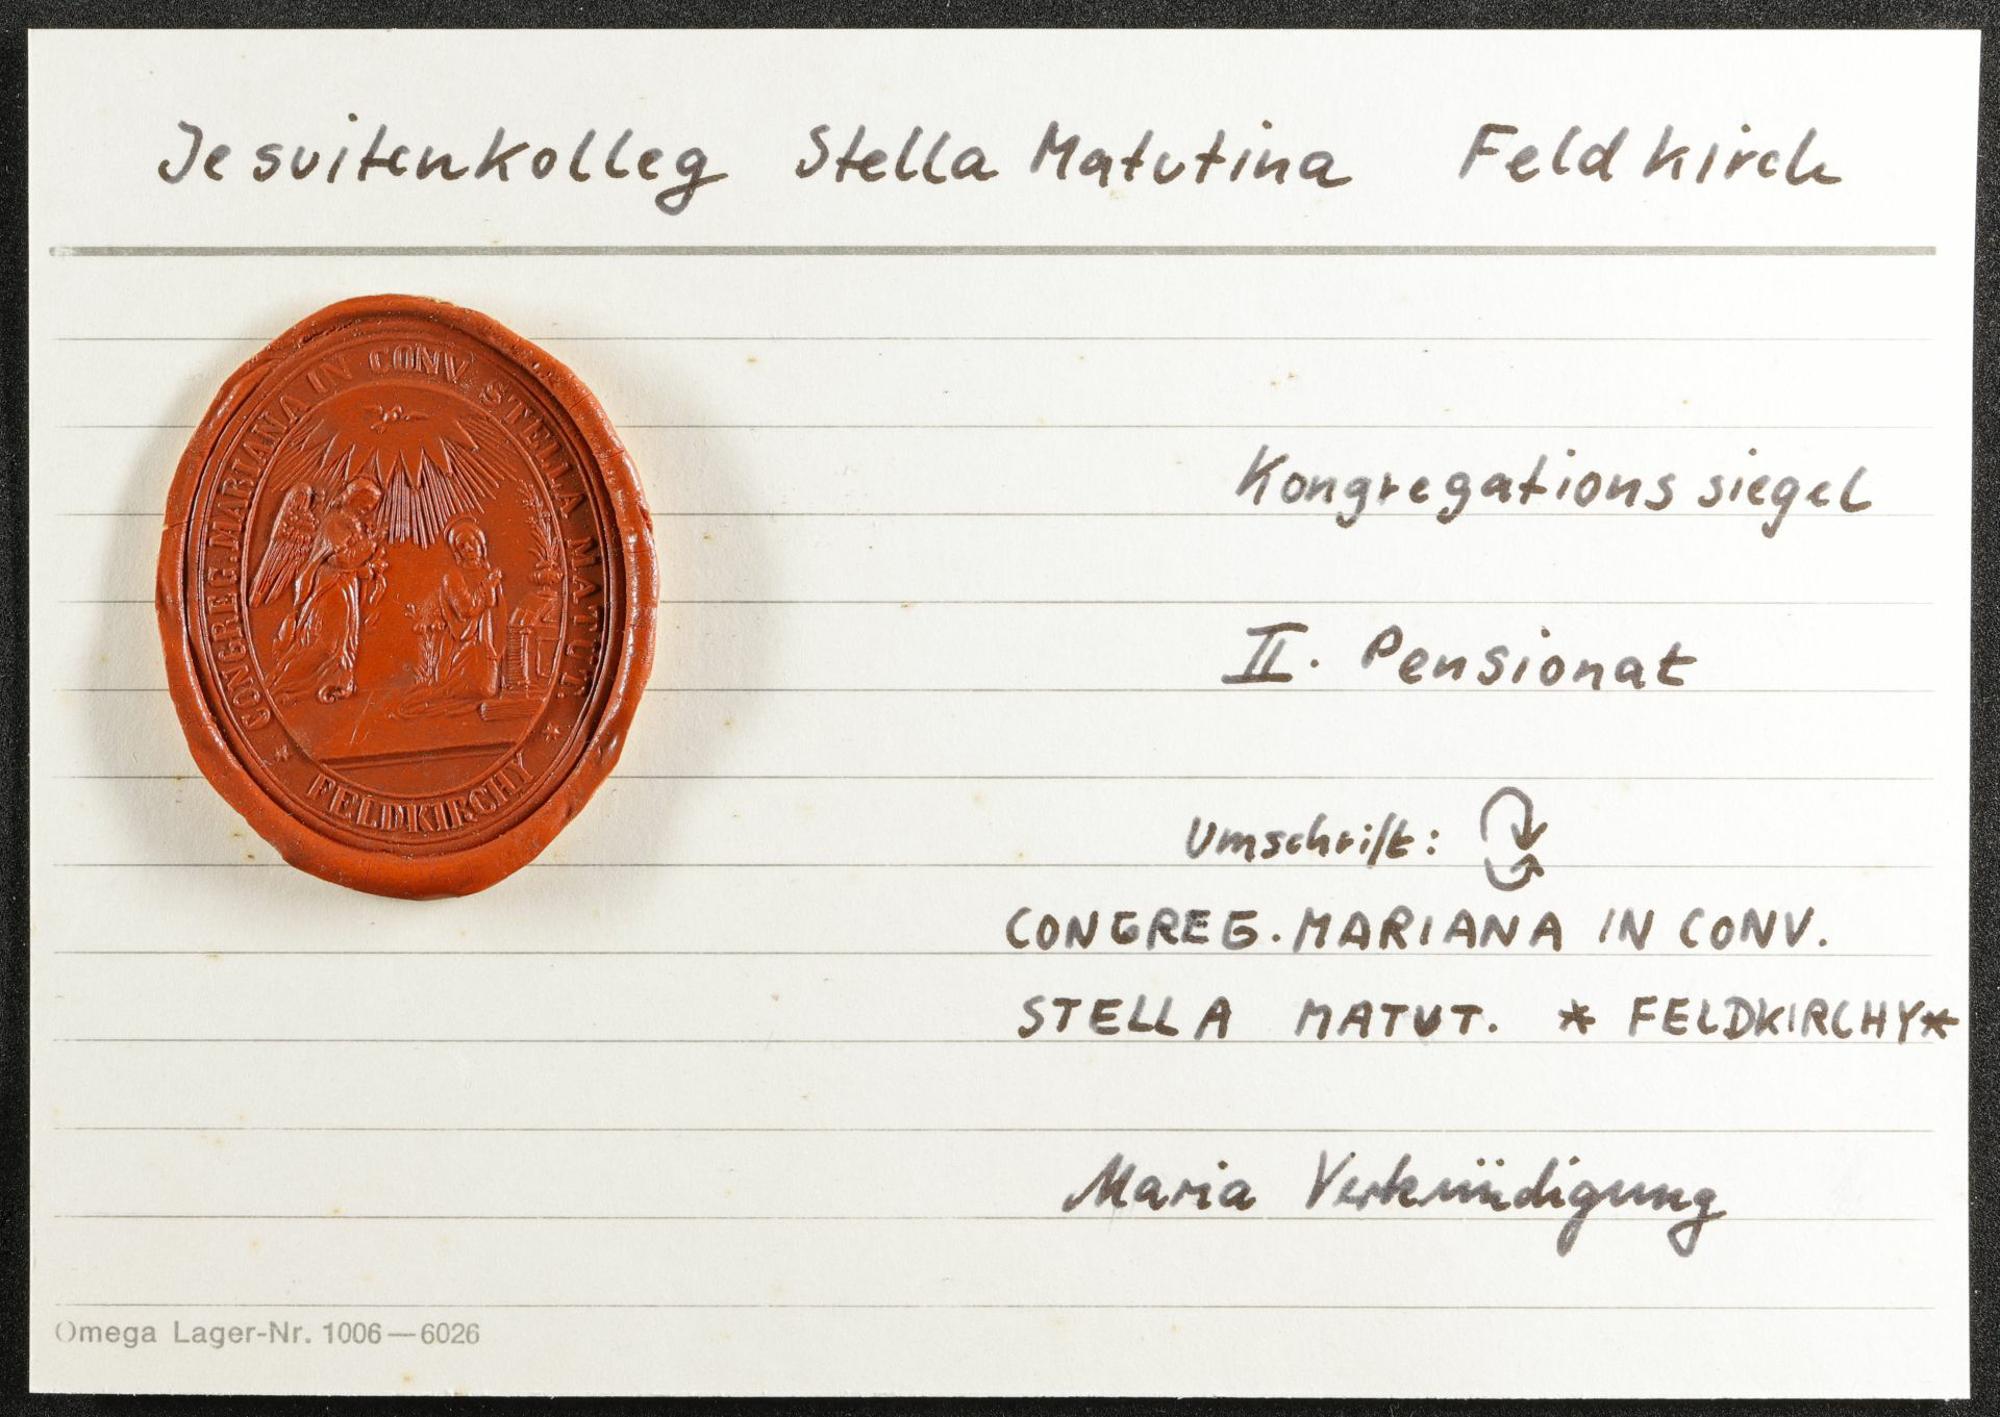 Jesuitenkolleg Stella Matutina Feldkirch
CONGREG. MARIANA IN CONV. STELLA MATUT.
* FELDKIRCHY *
Kongregationssiegel
II. Pensionat
Umschrift:
CONGREG. MARIANA IN CONV.
STELLA MATUT. * FELDKIRCHY*
Maria Verkündigung
Omega Lager-Nr. 1006—6026